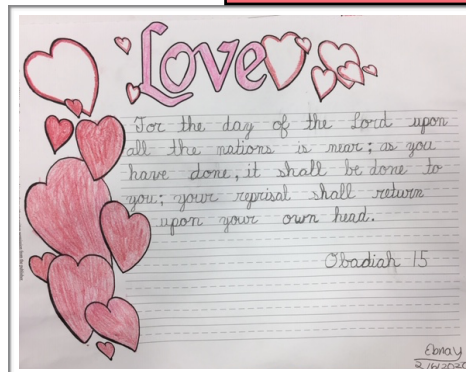 Love
For the day of the Lord upon
all the nations is near; as you
have done, it shall be done to
you; your reprisal shall return
upon your own head.
Obadiah 15
Ebnay
2/6/2020